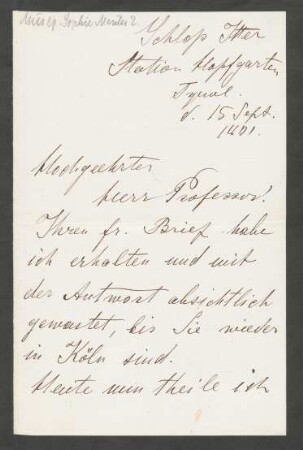 Schloss Itter
Station Hopfgarten
Tyrol.
d. 15 Sept.
1901.
Hochgeehrter
Herr Professor!
Ihren fr. Brief habe
ich erhalten und mit
der Antwort absichtlich
gewartet, bis Sie wieder
in Köln sind.
Heute nun theile ich